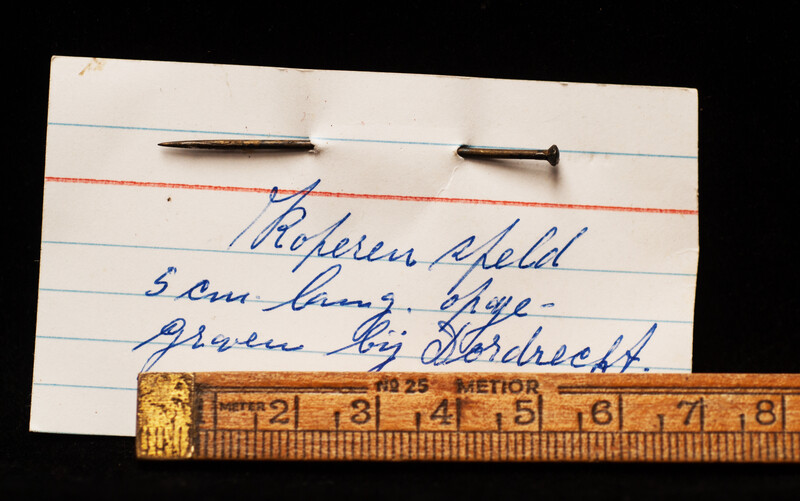 Koperen speld
5 cm lang. opge-
graven bij Dordrecht.
No 25 METIOR
METER 2 3 4 5 6 7 8